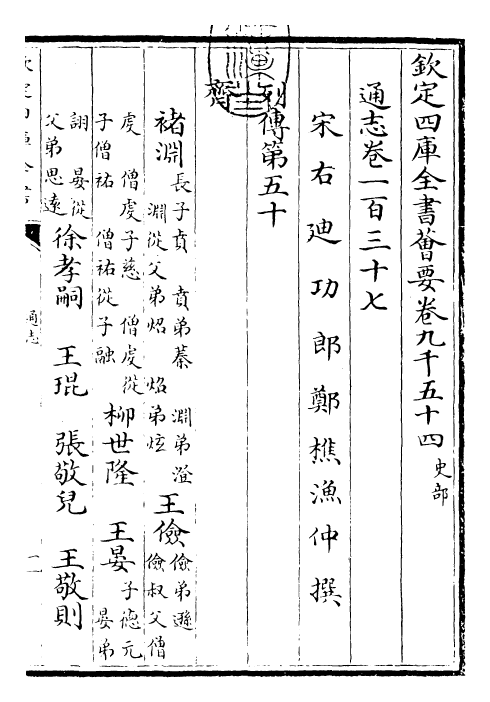 欽定四庫全書薈要卷九千五十四 史部
通志卷一百三十七
宋右迪功郎鄭樵漁仲撰
列傳第五十
齊
褚淵 長子賁 賁弟蓁 淵弟澄 淵從父弟炤 炤弟炫 王儉 儉弟遜 儉叔父僧
虔 僧虔子慈 僧虔從子僧祐 僧祐從子融 柳世隆 王晏 子德元 晏弟
詡 晏從父弟思遠 徐孝嗣 王琨 張敬兒 王敬則
通志
一